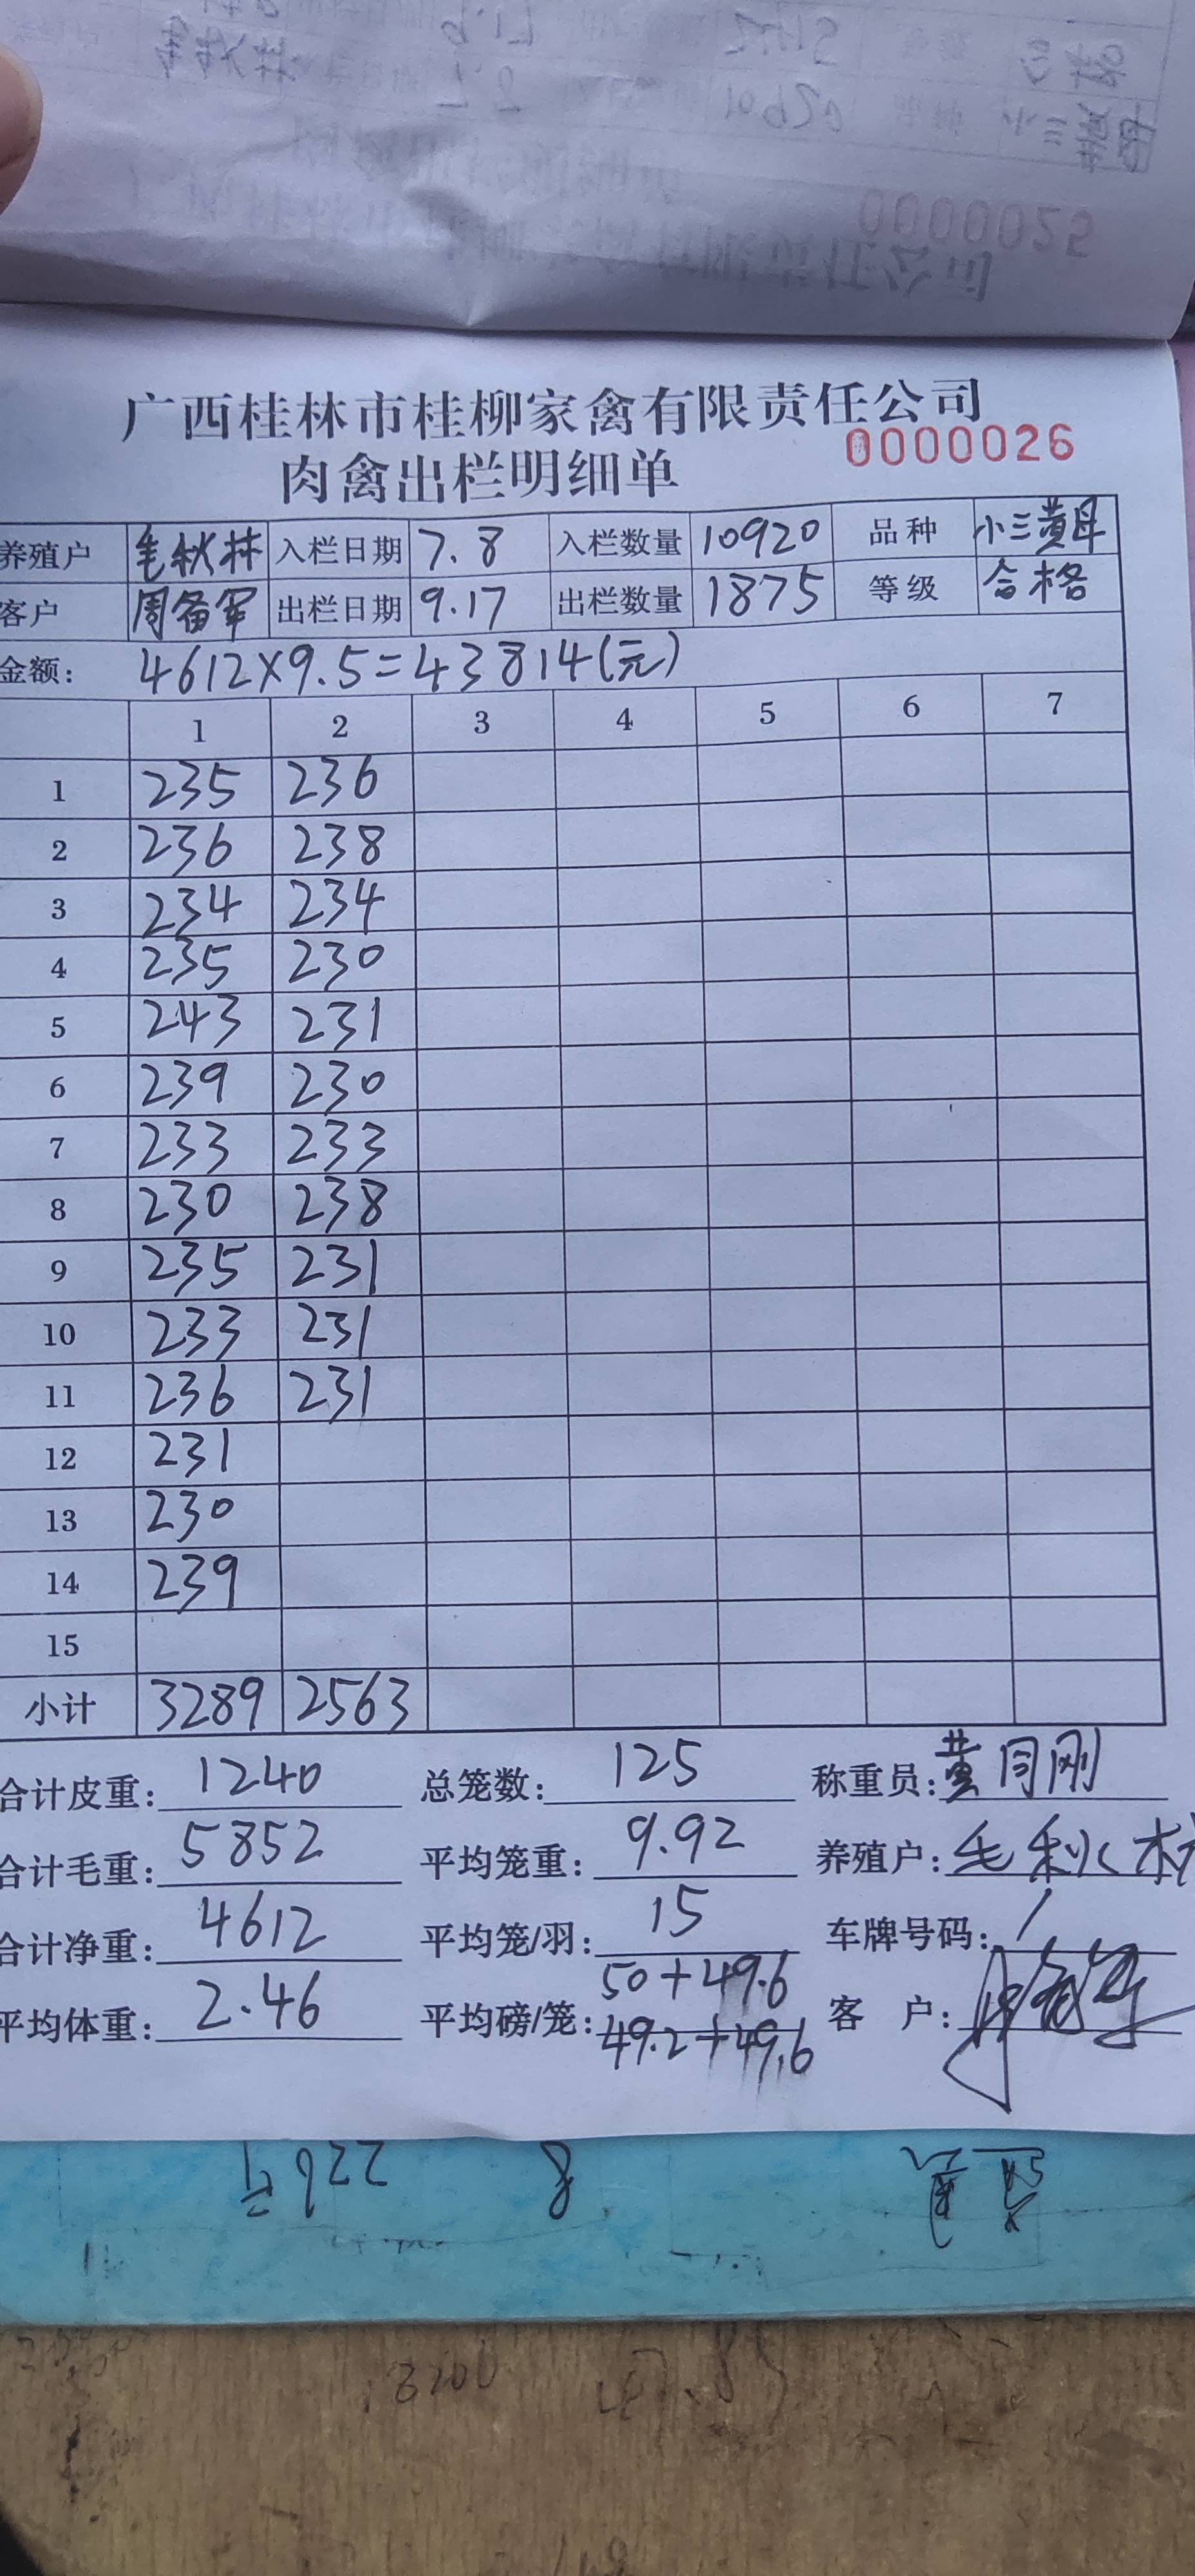 0000025
广西桂林市桂柳家禽有限责任公司
肉禽出栏明细单 0000026
养殖户 毛秋林 入栏日期 7.8 入栏数量 10920 品种 小三黄母
客户 周备军 出栏日期 9.17 出栏数量 1875 等级 合格
金额: 4612×9.5=43814(元)
1 2 3 4 5 6 7
1 235 236
2 236 238
3 234 234
4 235 230
5 243 231
6 239 230
7 233 233
8 230 238
9 235 231
10 233 231
11 236 231
12 231
13 230
14 239
15
小计 3289 2563
合计皮重: 1240 总笼数: 125 称重员: 黄同刚
合计毛重: 5852 平均笼重: 9.92 养殖户: 毛秋林
合计净重: 4612 平均笼/羽: 15 车牌号码: /
平均体重: 2.46 平均磅/笼: 50+49.6 客户:
49.2+49.6